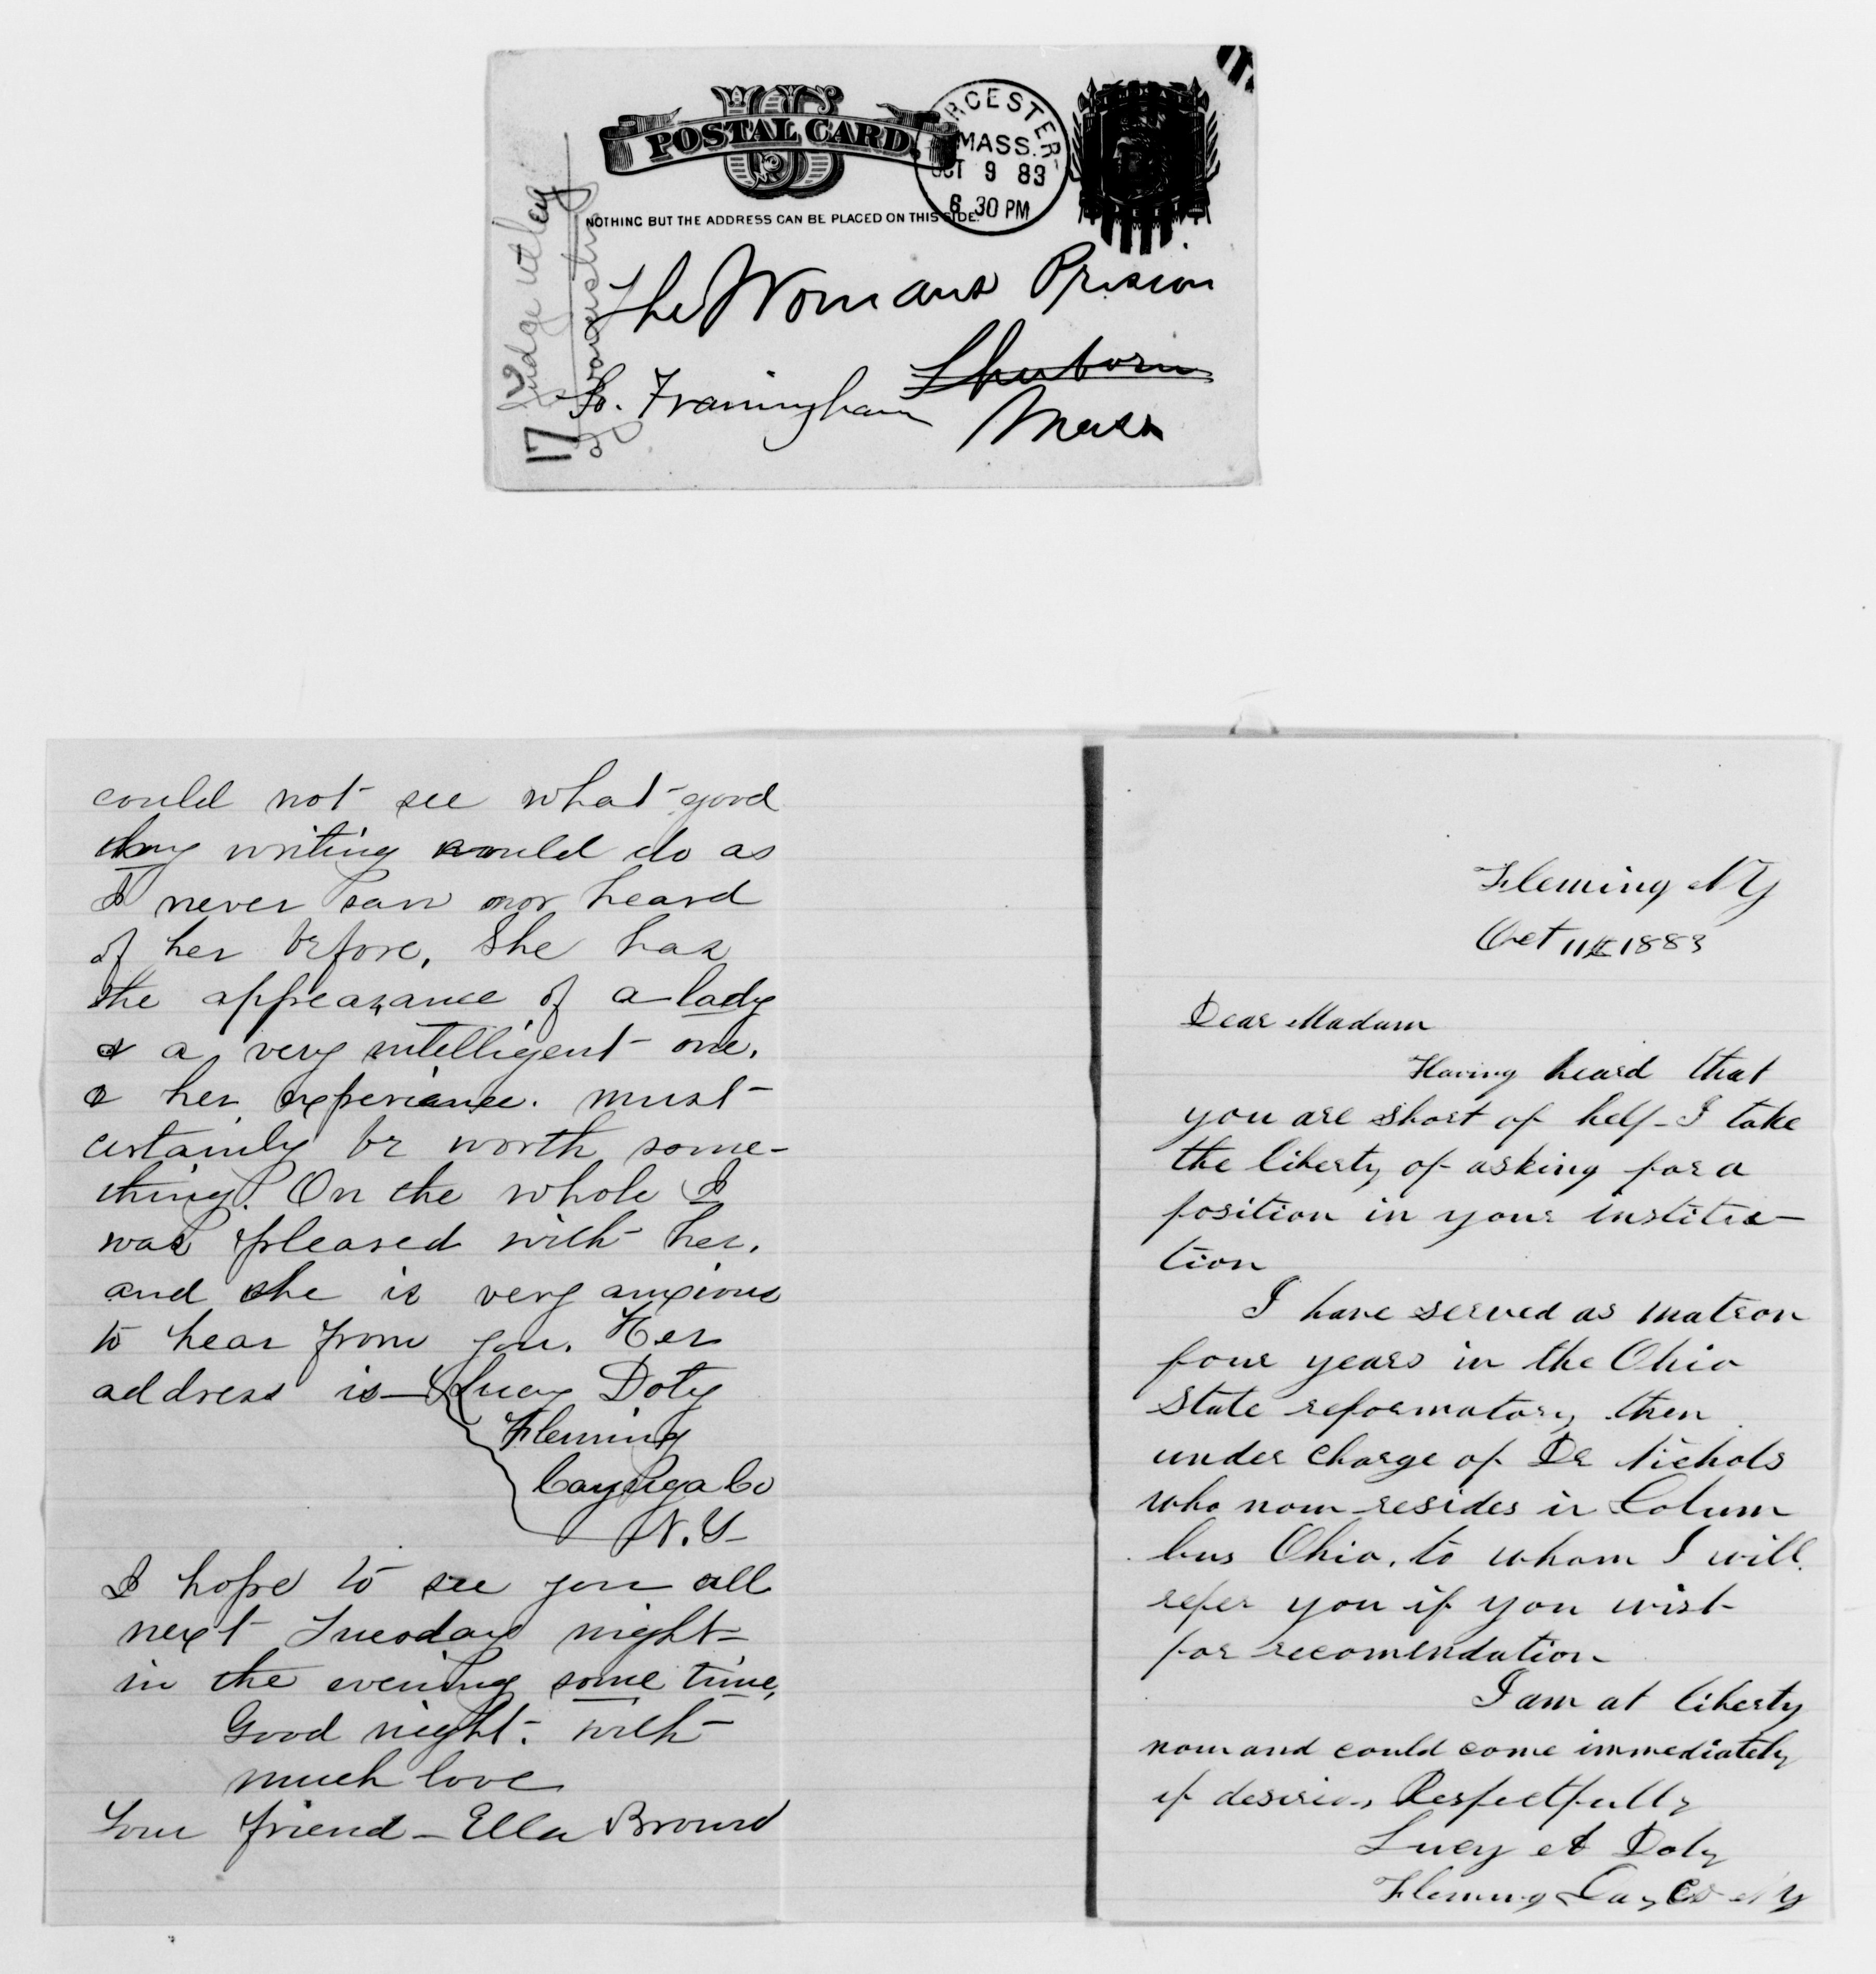 US
POSTAL CARD
WORCESTER
MASS.
OCT 9 83
6 30 PM
NOTHING BUT THE ADDRESS CAN BE PLACED ON THIS SIDE.
The Womans Prision
Sherborn
So. Framingham
Mass
Judge Utley
17
could not see what good
my writing would do as
I never saw nor heard
of her before. She has
the appearance of a lady
& a very intelligent one.
& her experiance. must
certainly be worth some-
thing. On the whole I
was pleased with her.
and she is very anxious
to hear from you. Her
address is — Lucy Doty
Fleming
Cayuga Co
N.Y
I hope to see you all
next Tuesday night
in the evening some time,
Good night. with
much love
Your friend — Ella Brown
Fleming NY
Oct 11th 1883
Dear Madam
Having heard that
you are short of help - I take
the liberty of asking for a
position in your institu-
tion
I have served as matron
four years in the Ohio
State reformatory then
under charge of Dr Nichols
who now resides in Colum
bus Ohio, to whom I will
refer you if you wish
for recomendation
I am at liberty
now and could come immediately
if desired. Respectfully
Lucy A Doty
Fleming Cay Co NY